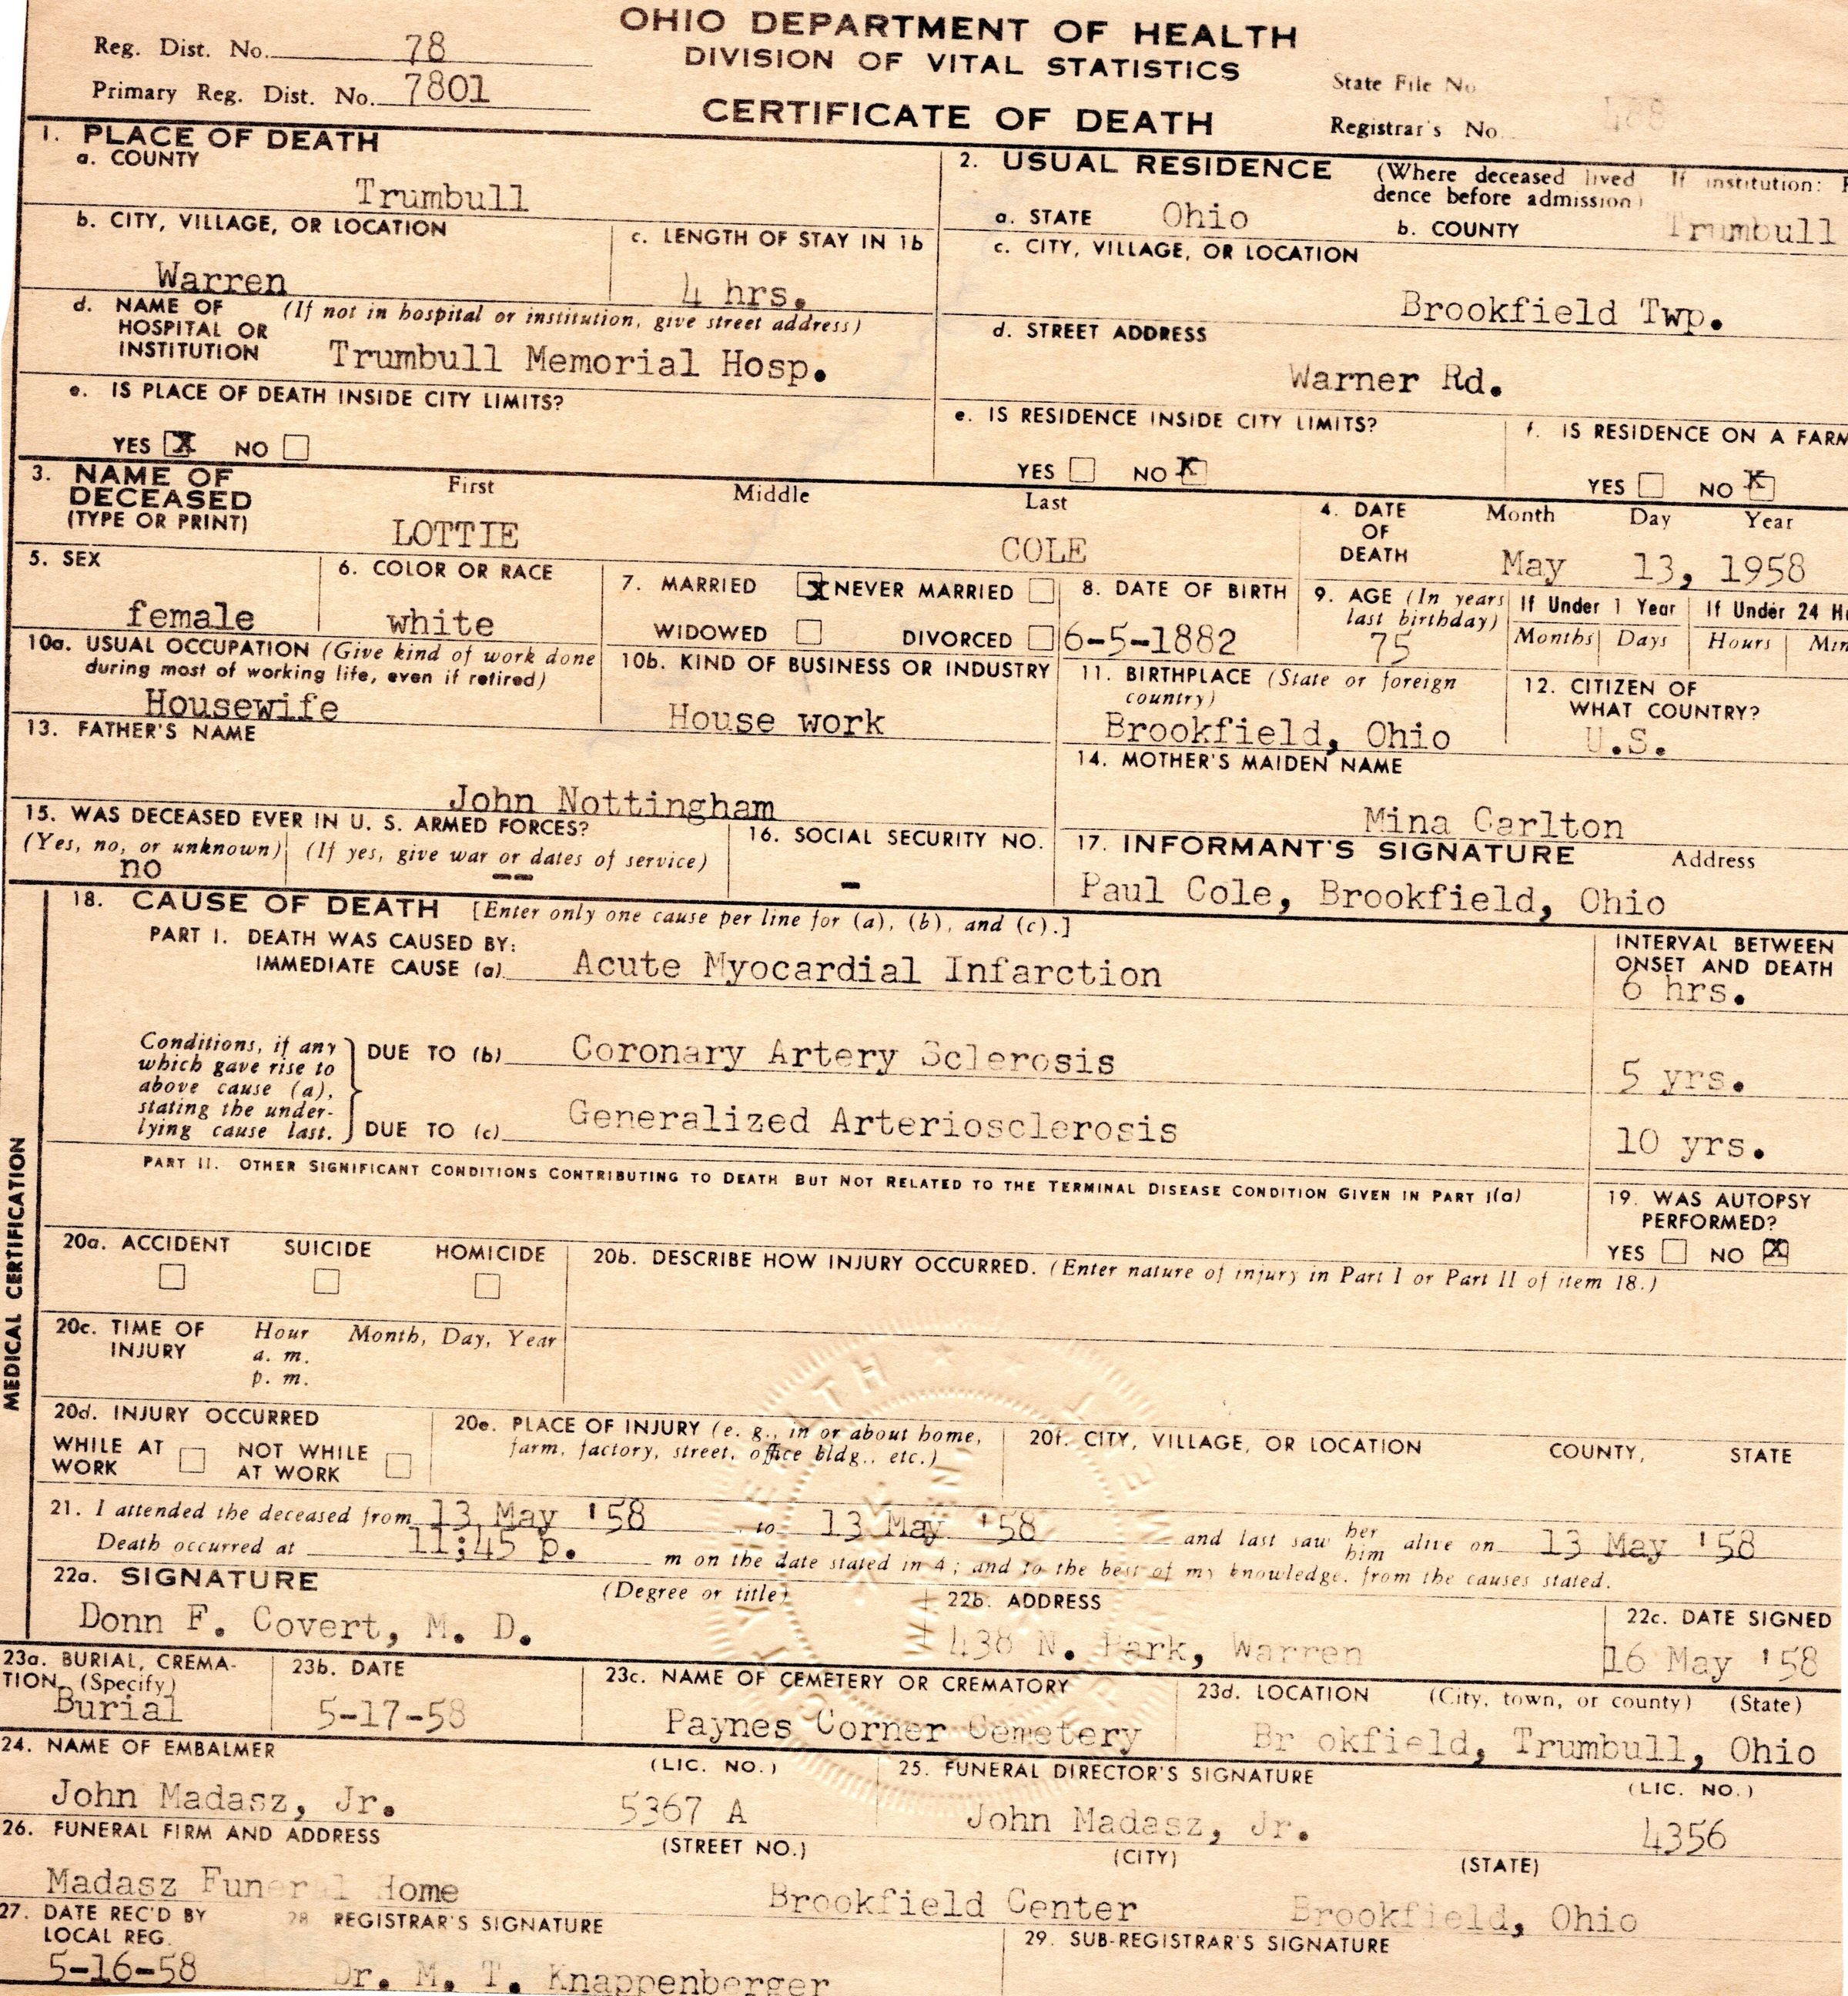 OHIO DEPARTMENT OF HEALTH
DIVISION OF VITAL STATISTICS
CERTIFICATE OF DEATH
Reg. Dist. No. 78
Primary Reg. Dist. No. 7801
State File No
Registrar's No.
1. PLACE OF DEATH
a. COUNTY
Trumbull
b. CITY, VILLAGE, OR LOCATION
Warren
c. LENGTH OF STAY IN 1b
4 hrs.
d. NAME OF HOSPITAL OR INSTITUTION (If not in hospital or institution, give street address)
Trumbull Memorial Hosp.
e. IS PLACE OF DEATH INSIDE CITY LIMITS?
YES X NO
2. USUAL RESIDENCE (Where deceased lived If institution:
dence before admission)
a. STATE Ohio b. COUNTY Trumbull
c. CITY, VILLAGE, OR LOCATION
Brookfield Twp.
d. STREET ADDRESS
Warner Rd.
e. IS RESIDENCE INSIDE CITY LIMITS?
YES NO X
f. IS RESIDENCE ON A FARM
YES NO X
3. NAME OF DECEASED (TYPE OR PRINT)
First Middle Last
LOTTIE COLE
4. DATE OF DEATH
Month Day Year
May 13, 1958
5. SEX
female
6. COLOR OR RACE
white
7. MARRIED X NEVER MARRIED
WIDOWED DIVORCED
8. DATE OF BIRTH
6-5-1882
9. AGE (In years last birthday)
75
If Under 1 Year If Under 24 H
Months Days Hours Min
10a. USUAL OCCUPATION (Give kind of work done
during most of working life, even if retired)
Housewife
10b. KIND OF BUSINESS OR INDUSTRY
House work
11. BIRTHPLACE (State or foreign country)
Brookfield, Ohio
12. CITIZEN OF WHAT COUNTRY?
U.S.
13. FATHER'S NAME
John Nottingham
14. MOTHER'S MAIDEN NAME
Mina Carlton
15. WAS DECEASED EVER IN U. S. ARMED FORCES?
(Yes, no, or unknown) (If yes, give war or dates of service)
no --
16. SOCIAL SECURITY NO.
-
17. INFORMANT'S SIGNATURE Address
Paul Cole, Brookfield, Ohio
MEDICAL CERTIFICATION
18. CAUSE OF DEATH [Enter only one cause per line for (a), (b), and (c).]
PART I. DEATH WAS CAUSED BY:
IMMEDIATE CAUSE (a) Acute Myocardial Infarction
INTERVAL BETWEEN ONSET AND DEATH
6 hrs.
Conditions, if any
which gave rise to
above cause (a),
stating the under-
lying cause last.
DUE TO (b) Coronary Artery Sclerosis
5 yrs.
DUE TO (c) Generalized Arteriosclerosis
10 yrs.
PART II. OTHER SIGNIFICANT CONDITIONS CONTRIBUTING TO DEATH BUT NOT RELATED TO THE TERMINAL DISEASE CONDITION GIVEN IN PART I(a)
19. WAS AUTOPSY PERFORMED?
YES NO X
20a. ACCIDENT SUICIDE HOMICIDE
20b. DESCRIBE HOW INJURY OCCURRED. (Enter nature of injury in Part I or Part II of item 18.)
20c. TIME OF INJURY
Hour Month, Day, Year
a. m.
p. m.
20d. INJURY OCCURRED
WHILE AT WORK NOT WHILE AT WORK
20e. PLACE OF INJURY (e. g., in or about home,
farm, factory, street, office bldg., etc.)
20f. CITY, VILLAGE, OR LOCATION COUNTY, STATE
21. I attended the deceased from 13 May '58 to 13 May '58 and last saw her him alive on 13 May '58
Death occurred at 11;45 p. m on the date stated in 4; and to the best of my knowledge, from the causes stated.
22a. SIGNATURE (Degree or title)
Donn F. Covert, M. D.
22b. ADDRESS
438 N. Park, Warren
22c. DATE SIGNED
16 May '58
23a. BURIAL, CREMA-
TION, (Specify)
Burial
23b. DATE
5-17-58
23c. NAME OF CEMETERY OR CREMATORY
Paynes Corner Cemetery
23d. LOCATION (City, town, or county) (State)
Br okfield, Trumbull, Ohio
24. NAME OF EMBALMER (LIC. NO.)
John Madasz, Jr. 5367 A
25. FUNERAL DIRECTOR'S SIGNATURE (LIC. NO.)
John Madasz, Jr. 4356
26. FUNERAL FIRM AND ADDRESS (STREET NO.) (CITY) (STATE)
Madasz Funeral Home Brookfield Center Brookfield, Ohio
27. DATE REC'D BY LOCAL REG.
5-16-58
28 REGISTRAR'S SIGNATURE
Dr. M. T. Knappenberger
29. SUB-REGISTRAR'S SIGNATURE